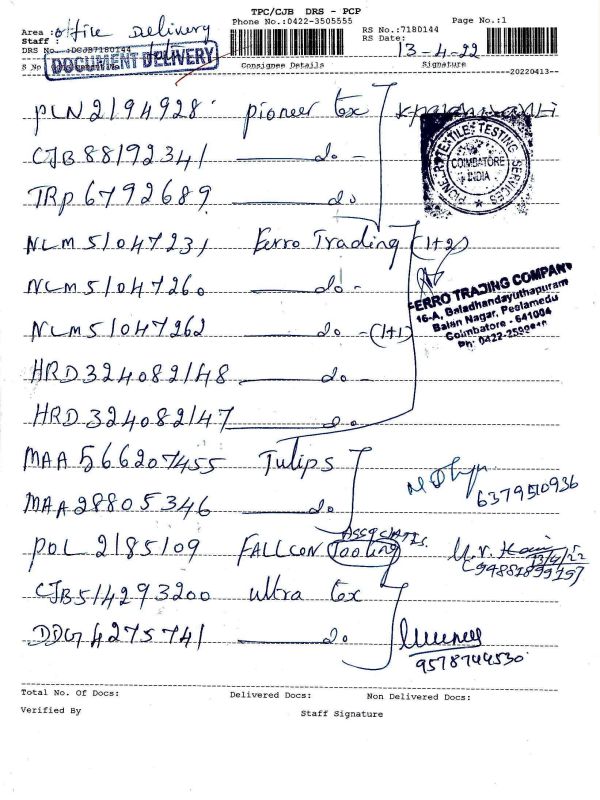 TPC/CJB DRS - PCP
Phone No.:0422-3505555
Page No.:1
Area : office Delivery
Staff :
DRS No. :DCJB7180144
RS No.:7180144
RS Date:
13-4-22
DOCUMENT DELIVERY
S No
Consignee Details
Signature
--20220413--
PLN2194928 pioneer tex
CJB88192341 do -
TRP6792689 do
PIONEER TEXTILE TESTING SERVICES
COIMBATORE
INDIA
NLM51047231 Ferro Trading (1+2)
NLM51047260 do -
NLM51047262 do -(1+1)
FERRO TRADING COMPANY
16-A, Baladhandayuthapuram
Balan Nagar, Peelamedu
Coimbatore - 641004
Ph: 0422-
HRD324082148 do -
HRD324082147 do
MAA566207455 Tulips
MAA28805346 do
6379510936
ASSOCIATES
POL2185109 FALLCON Tooling
13/4/22
CJB514293200 ultra tex
DDG4275741 do
9578744530
Total No. Of Docs: Delivered Docs: Non Delivered Docs:
Verified By Staff Signature